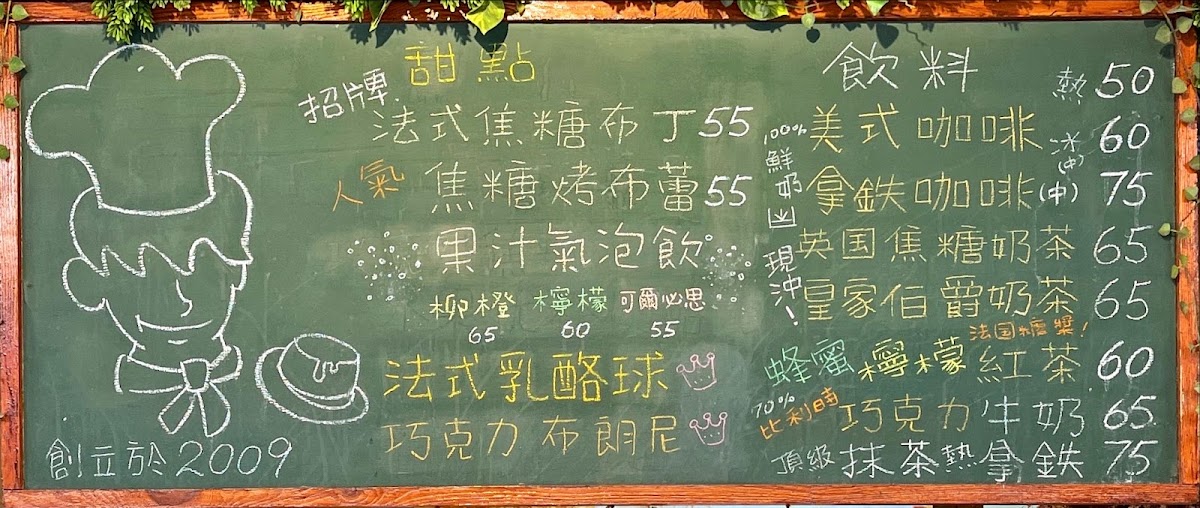 甜點
招牌 法式焦糖布丁 55
人氣 焦糖烤布蕾 55
果汁氣泡飲
柳橙 檸檬 可爾必思
65 60 55
法式乳酪球
巧克力布朗尼
創立於2009
飲料
熱 50
美式咖啡 冰(中) 60
100%鮮奶
拿鉄咖啡(中) 75
現沖!
英国焦糖奶茶 65
皇家伯爵奶茶 65
法国糖漿!
蜂蜜檸檬紅茶 60
70%比利時 巧克力牛奶 65
頂級 抹茶熱拿鉄 75